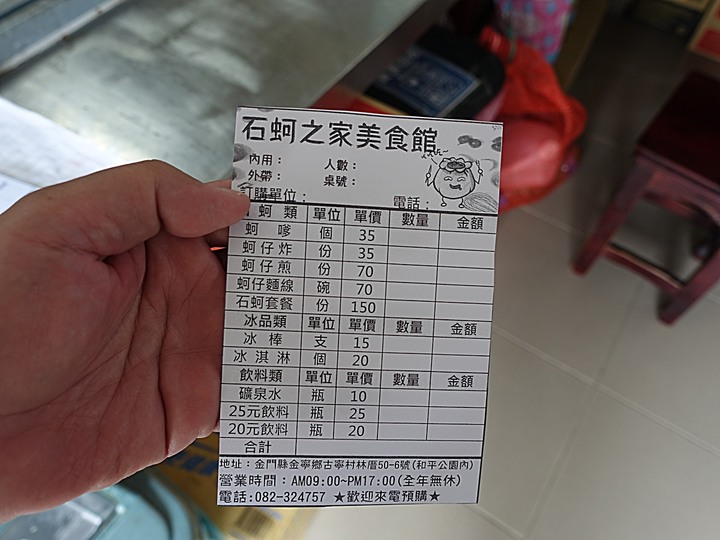 石蚵之家美食館
內用： 人數：
外帶： 桌號：
訂購單位： 電話：
蚵 類 單位 單價 數量 金額
蚵 嗲 個 35
蚵仔炸 份 35
蚵仔煎 份 70
蚵仔麵線 碗 70
石蚵套餐 份 150
冰品類 單位 單價 數量 金額
冰 棒 支 15
冰 淇 淋 個 20
飲料類 單位 單價 數量 金額
礦泉水 瓶 10
25元飲料 瓶 25
20元飲料 瓶 20
合計
地址：金門縣金寧鄉古寧村林厝50-6號(和平公園內)
營業時間：AM09:00~PM17:00(全年無休)
電話:082-324757 ★歡迎來電預購★